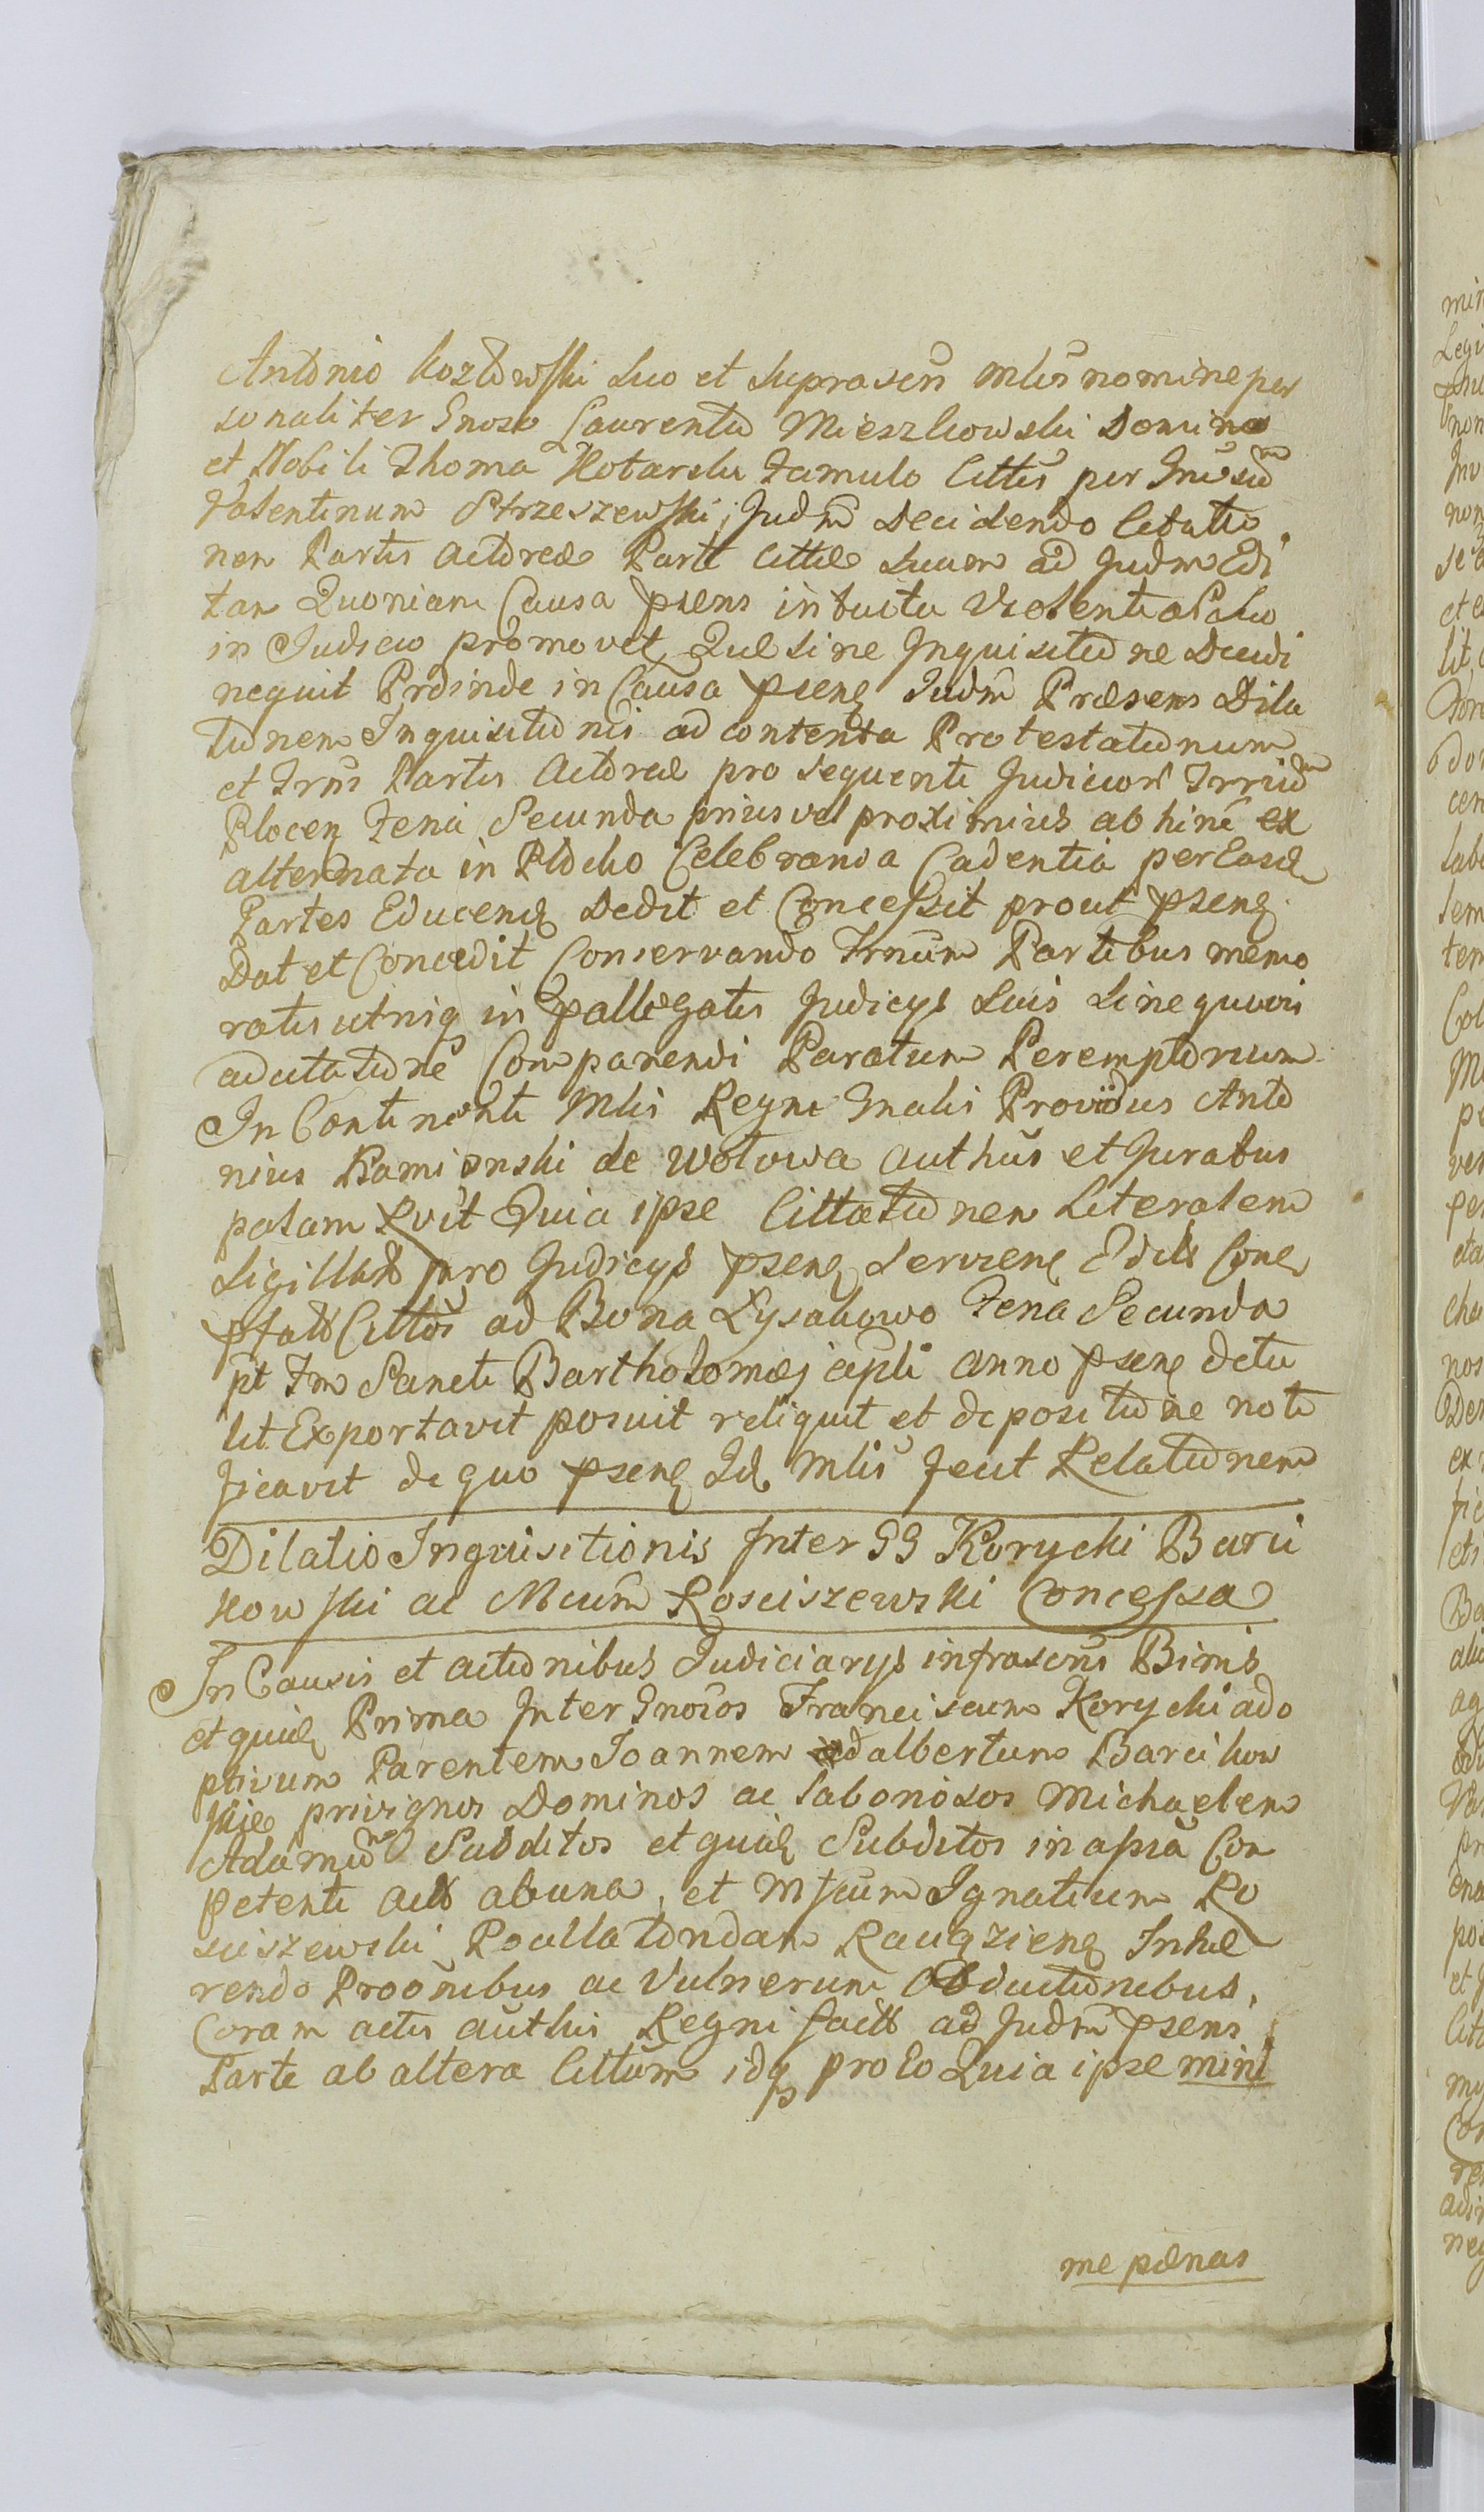 Antonio Kozłowski suo et suprascri mlris nomine per
sonaliter Gnoso Laurentio Mieszkowski Domino
et Nobili Thoma Kotarski Famulo Cittis per Gnosum
Valentinum Strzeszewski, Judm Decidendo Citatio
nem Partis Actoreæ Parti Cittæ suum ad Judm Edi
tam Quoniam Causa psens intuitu Violentia
in Judicio promovet, Quæ sine Inquisitione Decidi
nequit Proinde in Causa psenq Judm Præsens Dila
tionem Inquisitionis ad contenta Protestationum
et Partis Actoreæ pro sequenti Judiciorū Trrium
Plocen Feria Secunda prius vel proximius ab hinc ex
alternata in Plocko Celebranda Cadentia per Easd
Partes Educenq Dedit et Concessit prout psenq
Dat et Concedit Conservando Trnum Partibus memo
ratis utrisq in pallegatis Judicys suis sine quovis
adcitatione Comparendi Paratum Peremptorium
In Continenti Mlis Regni Gnalis Providus Anto
nius Kamienski de Wołowa authūs et Juratus
palam Rvit Quia ipse Cittationem Literalem
Sigillatā pro Judicys psenq Servien Edits Cone
Cittōs ad Bona Łysakowo Feria Secunda
pt Fm Sancti Bartholomæj apli anno psenq detu
lit Exportavit posuit reliquit et de positione noti
ficavit de quo psenq Id Mlis fecit Relationem
Dilatio Inquisitionis Inter GG Korycki Barci
kowski ac Mcum Rosciszewski Concessa
In Causis et actionibus Judiciarys infrascris Binis
et quidq Prima Inter Gnosos Franciscum Korycki ado
ptivum Parentem Joannem adalbertum Barcikow
skie privignos Dominos ac laboriosos Michaelem
Adamum Subditos et quidq Subditos in apsia Con
petenti acts ab una, et Mfcum Ignatium Ro
sciszewski Poculla tondam Raugzienq Inhæ
rendo Proonibus ac Vulnerum Obductionibus,
Coram actis authis Regni facts ad Judm psens
Parte ab altera Cittum idq pro Eo Quia ipse mini
me pænas